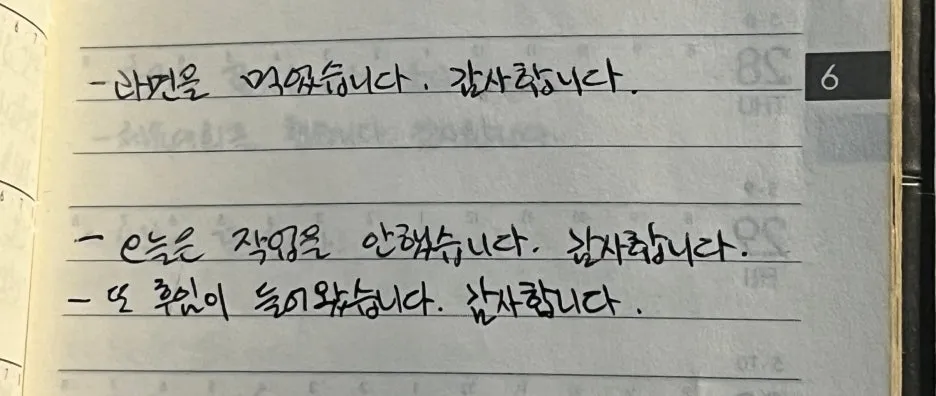 - 라면을 먹었습니다. 감사합니다.
6
- 오늘은 작업을 안했습니다. 감사합니다.
- 또 후임이 들어왔습니다. 감사합니다.